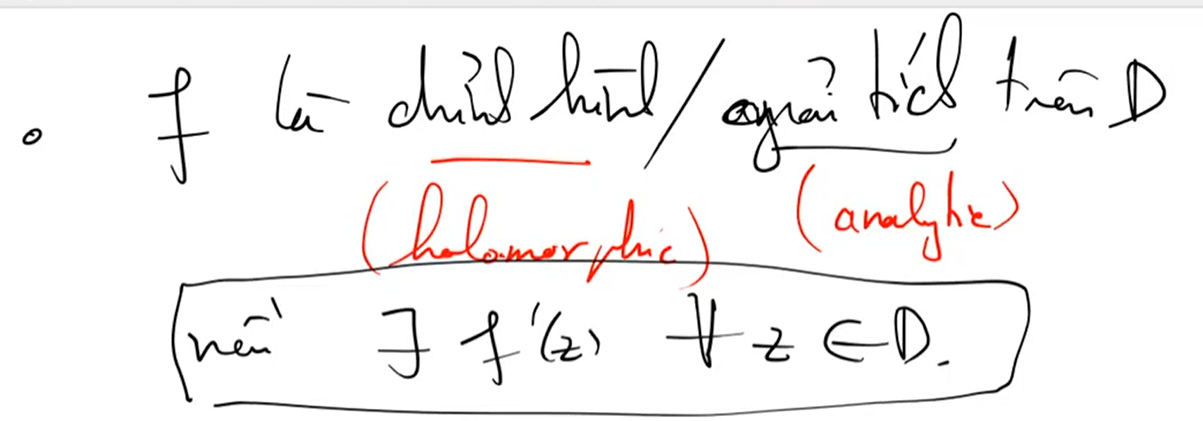 • f là chỉnh hình / giải tích trên D
(holomorphic) (analytic)
nếu ∃ f'(z) ∀ z ∈ D.